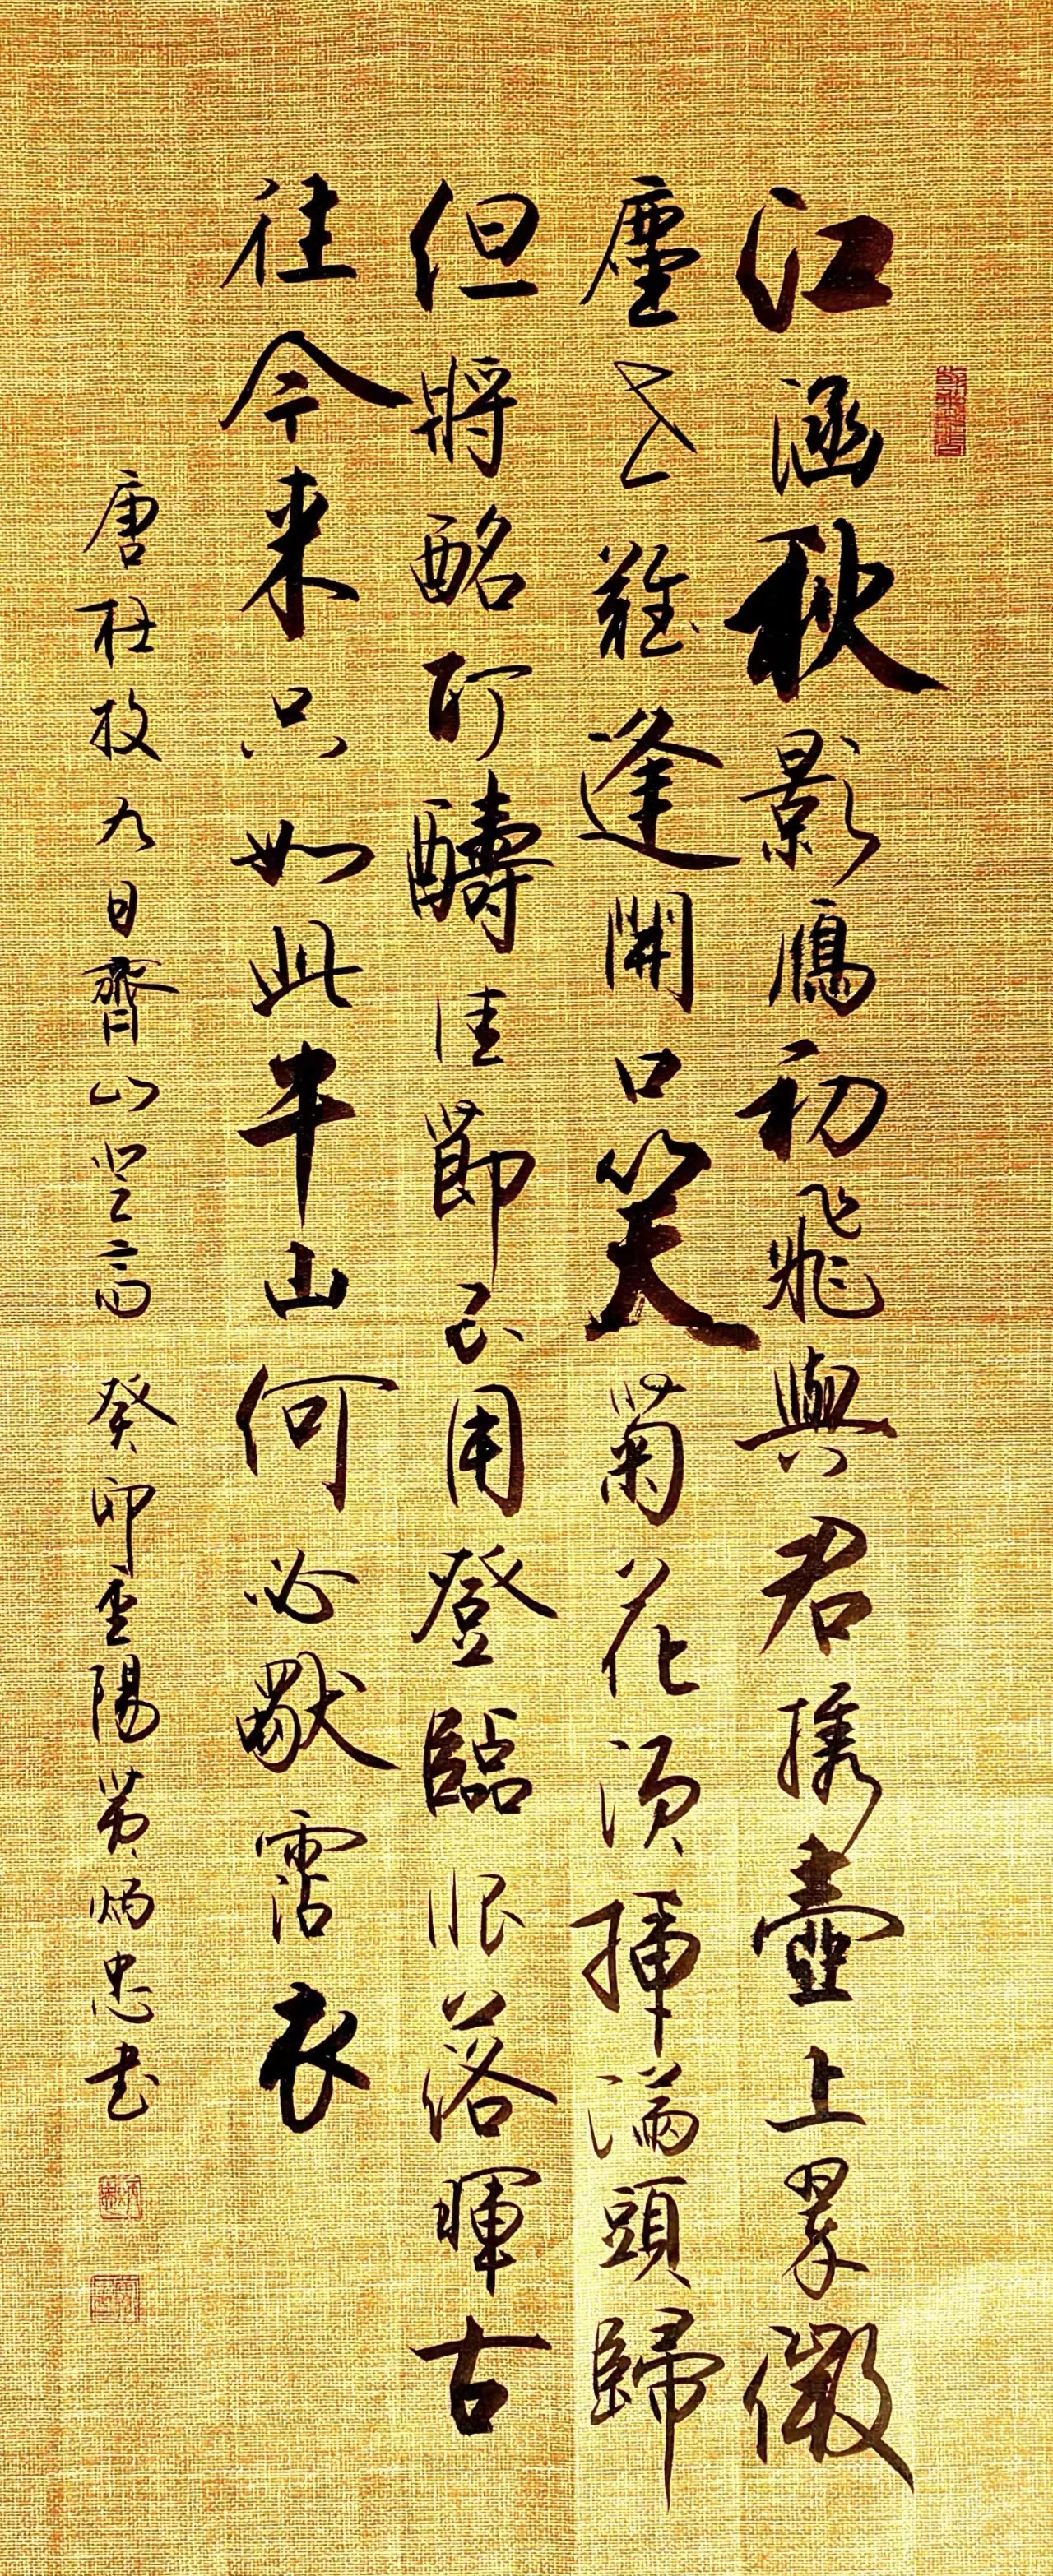 江涵秋影鴈初飛與君携壺上翠微
塵世難逢開口笑菊花須插滿頭歸
但將酩酊醻佳節不用登臨恨落暉古
往今来只如此牛山何必獨霑衣
唐杜牧九日齊山登高 癸卯重陽黄炳忠書